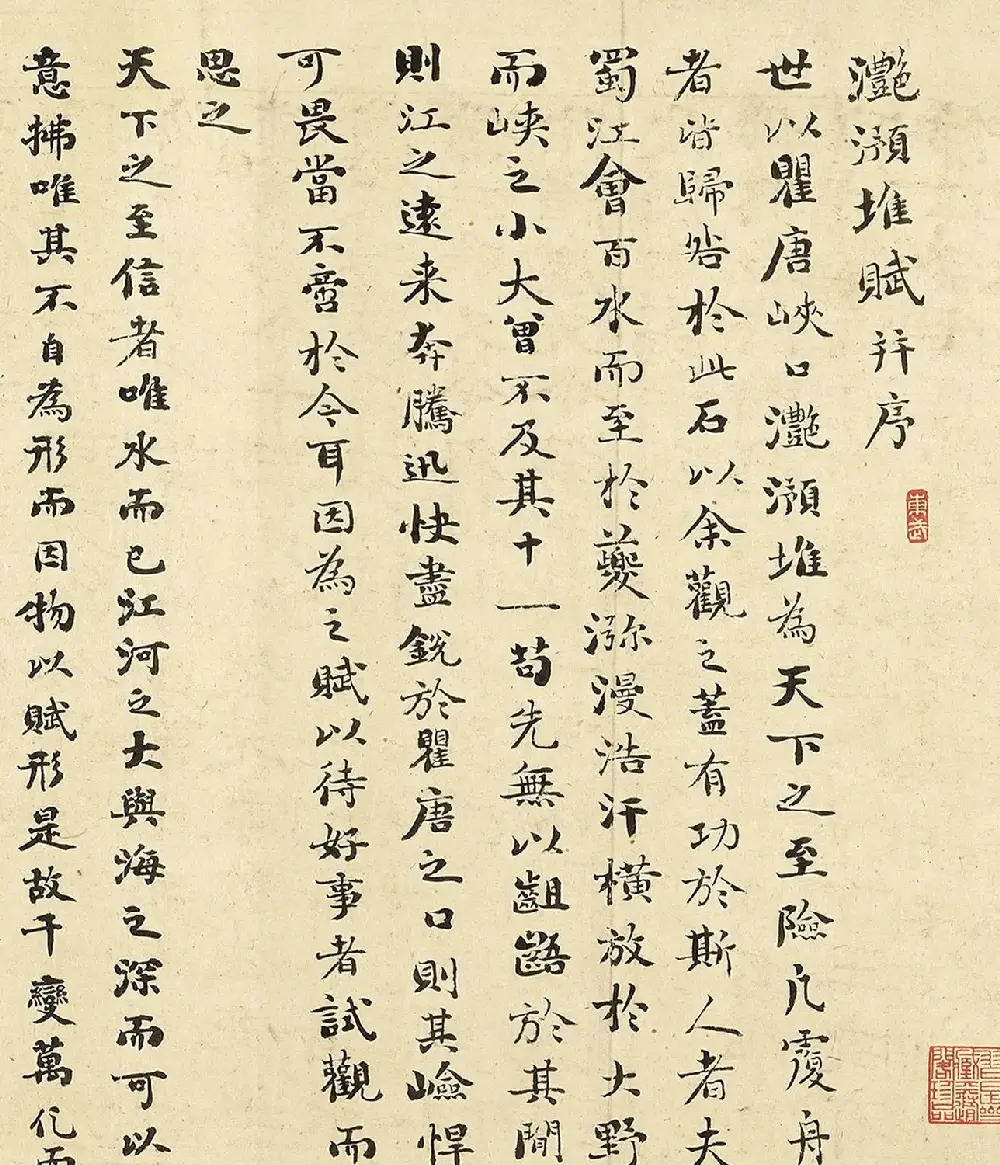 灩澦堆賦并序
世以瞿唐峽口灩澦堆為天下之至險凡覆舟
者皆歸咎於此石以余觀之蓋有功於斯人者夫
蜀江會百水而至於夔瀰漫浩汗橫放於大野
而峽之小大曾不及其十一苟先無以齟齬於其間
則江之遠來奔騰迅快盡銳於瞿唐之口則其嶮悍
可畏當不啻於今耳因為之賦以待好事者試觀而
思之
天下之至信者唯水而已江河之大與海之深而可以
意揣唯其不自為形而因物以賦形是故千變萬化而
東武